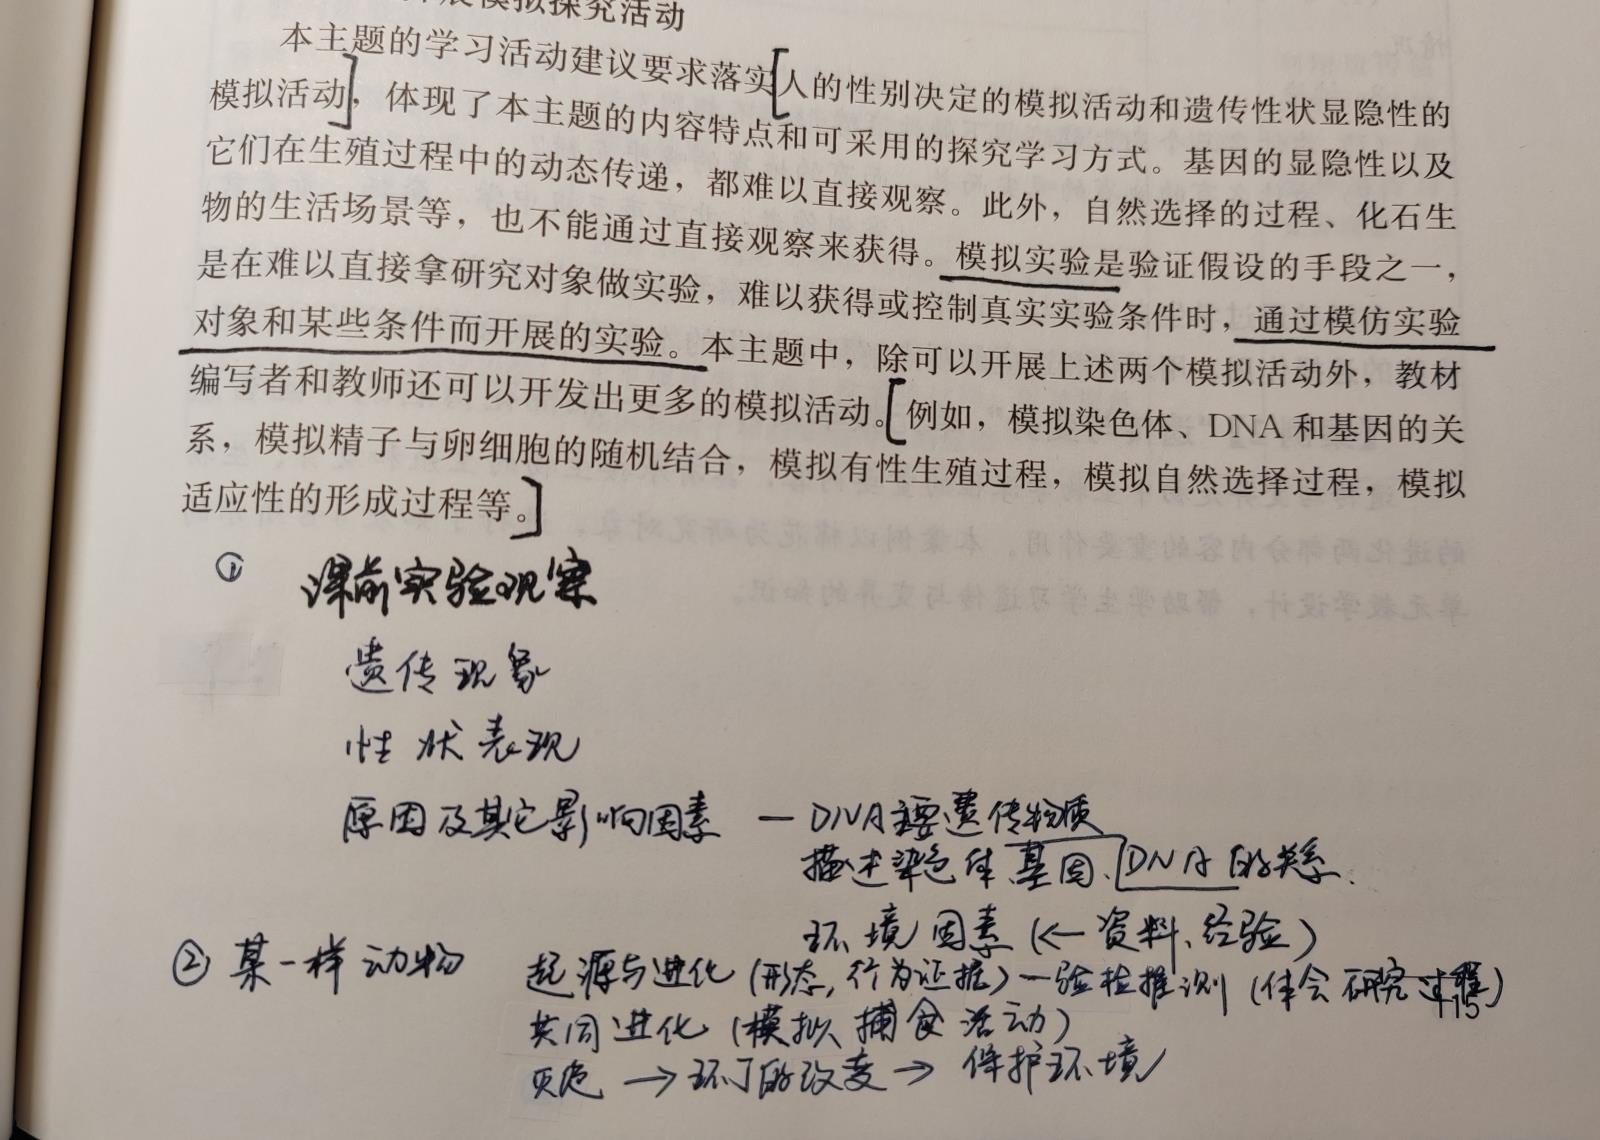 展模拟探究活动
本主题的学习活动建议要求落实[人的性别决定的模拟活动和遗传性状显隐性的
模拟活动]，体现了本主题的内容特点和可采用的探究学习方式。基因的显隐性以及
它们在生殖过程中的动态传递，都难以直接观察。此外，自然选择的过程、化石生
物的生活场景等，也不能通过直接观察来获得。模拟实验是验证假设的手段之一，
是在难以直接拿研究对象做实验，难以获得或控制真实实验条件时，通过模仿实验
对象和某些条件而开展的实验。本主题中，除可以开展上述两个模拟活动外，教材
编写者和教师还可以开发出更多的模拟活动。[例如，模拟染色体、DNA和基因的关
系，模拟精子与卵细胞的随机结合，模拟有性生殖过程，模拟自然选择过程，模拟
适应性的形成过程等。]
① 课前实验观察
遗传现象
性状表现
原因及其它影响因素 — DNA主要遗传物质
描述染色体、基因、DNA的关系.
环境因素（←资料、经验）
② 某一样动物 起源与进化（形态，行为证据）—验检推测（体会研究过程）
115
共同进化（模拟捕食活动）
灭危 → 环丁的改变 → 保护环境